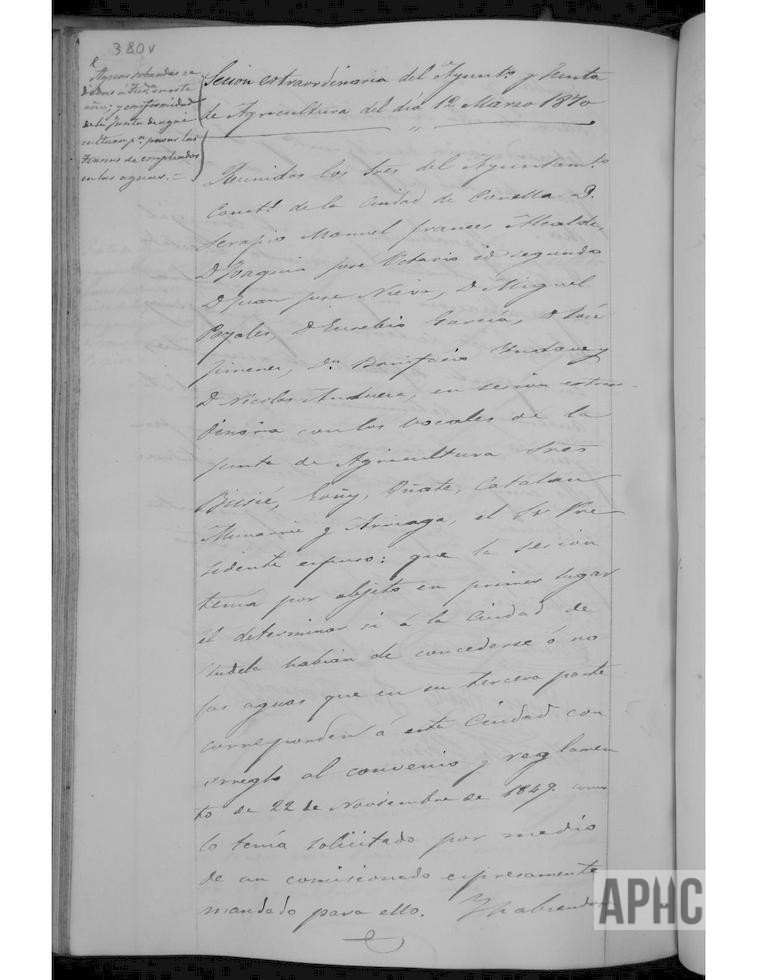 380v
Aguas sobrantes ce
didas á Tudela este
año; y conformidad
de la Junta de agri
cultura pª. pasar las
ternas de empleados
en las aguas. =
Sesion extraordinaria del Ayuntº. y Junta
de Agricultura del dia 12 Marzo 1870
Reunidos los Sres del Ayuntamtº.
Constl. de la Ciudad de Corella D.
Serafio Manuel Frances Alcalde,
D Joaquin José Octavio id segundo
D Juan José Nieva, D Miguel
Poyales, D Eusebio Garcia, D José
Jimenez, Dn. Bonifacio
D Nicolas Andueza, en sesion extraor
dinaria con los vocales de la
junta de Agricultura Sres
Goñy, Oñate, Catalan
y Arriaga, el Sr Pre
sidente expuso: que la sesion
tenia por objeto en primer lugar
el determinar si á la Ciudad de
Tudela habian de concederse ó no
las aguas que en su tercera parte
corresponden á esta Ciudad con
arreglo al convenio y reglamen
to de 22 de Noviembre de 1849. como
lo tenia solicitado por medio
de un comisionado expresamente
mandado para ello. Y habiendose
APHC